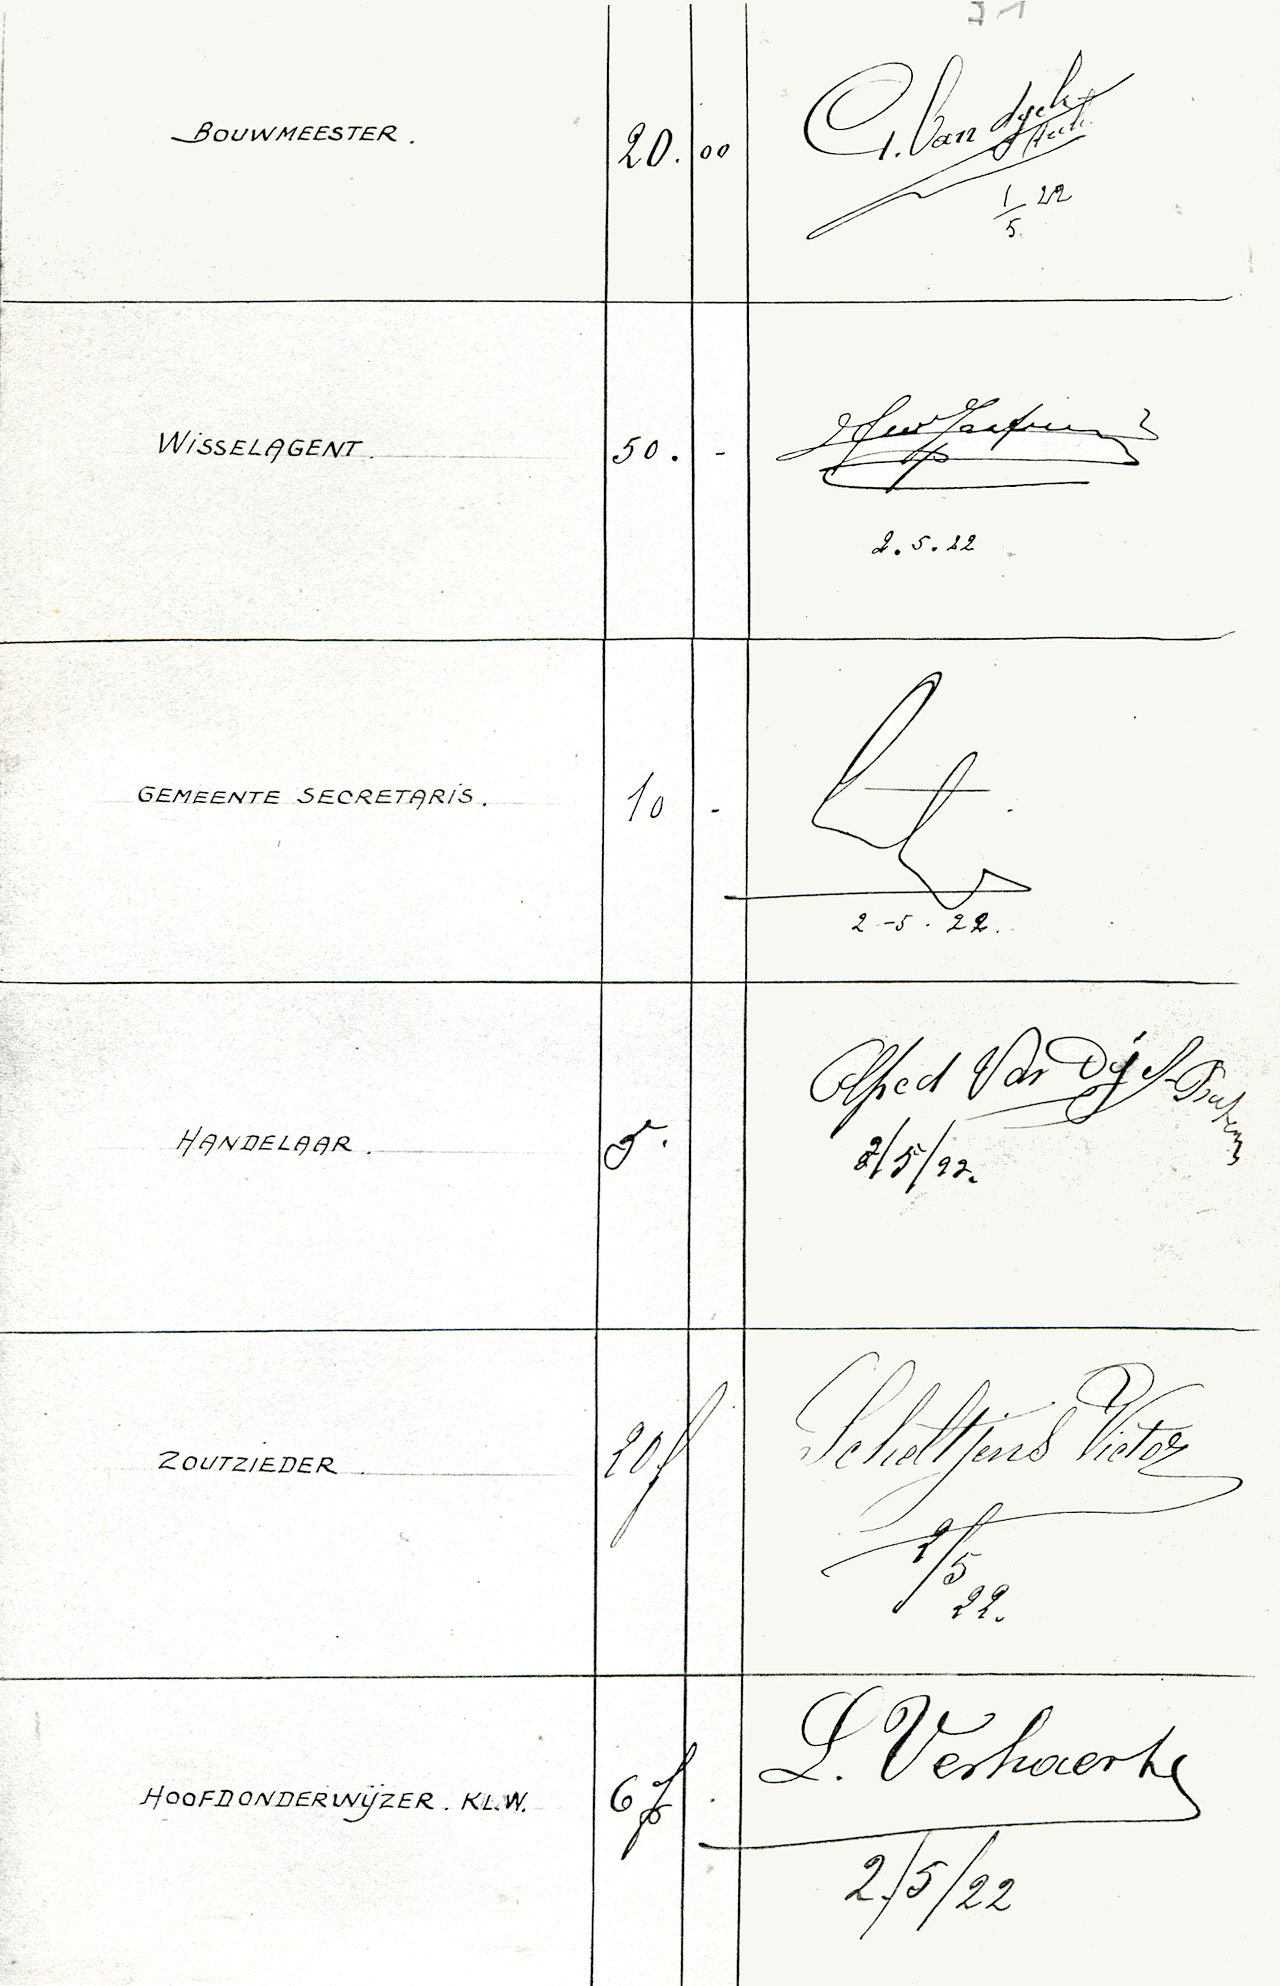 BOUWMEESTER. 20.00 G. Van dyck
1/5 22
WISSELAGENT. 50. -
2.5.22
GEMEENTE SECRETARIS. 10 -
2-5.22.
HANDELAAR. 5. Alfred Van Dyck
2/5/22.
ZOUTZIEDER. 20f Scheltjens Victor
2/5
22.
HOOFDONDERWIJZER. KL.W. 6f L. Verhaert
2/5/22